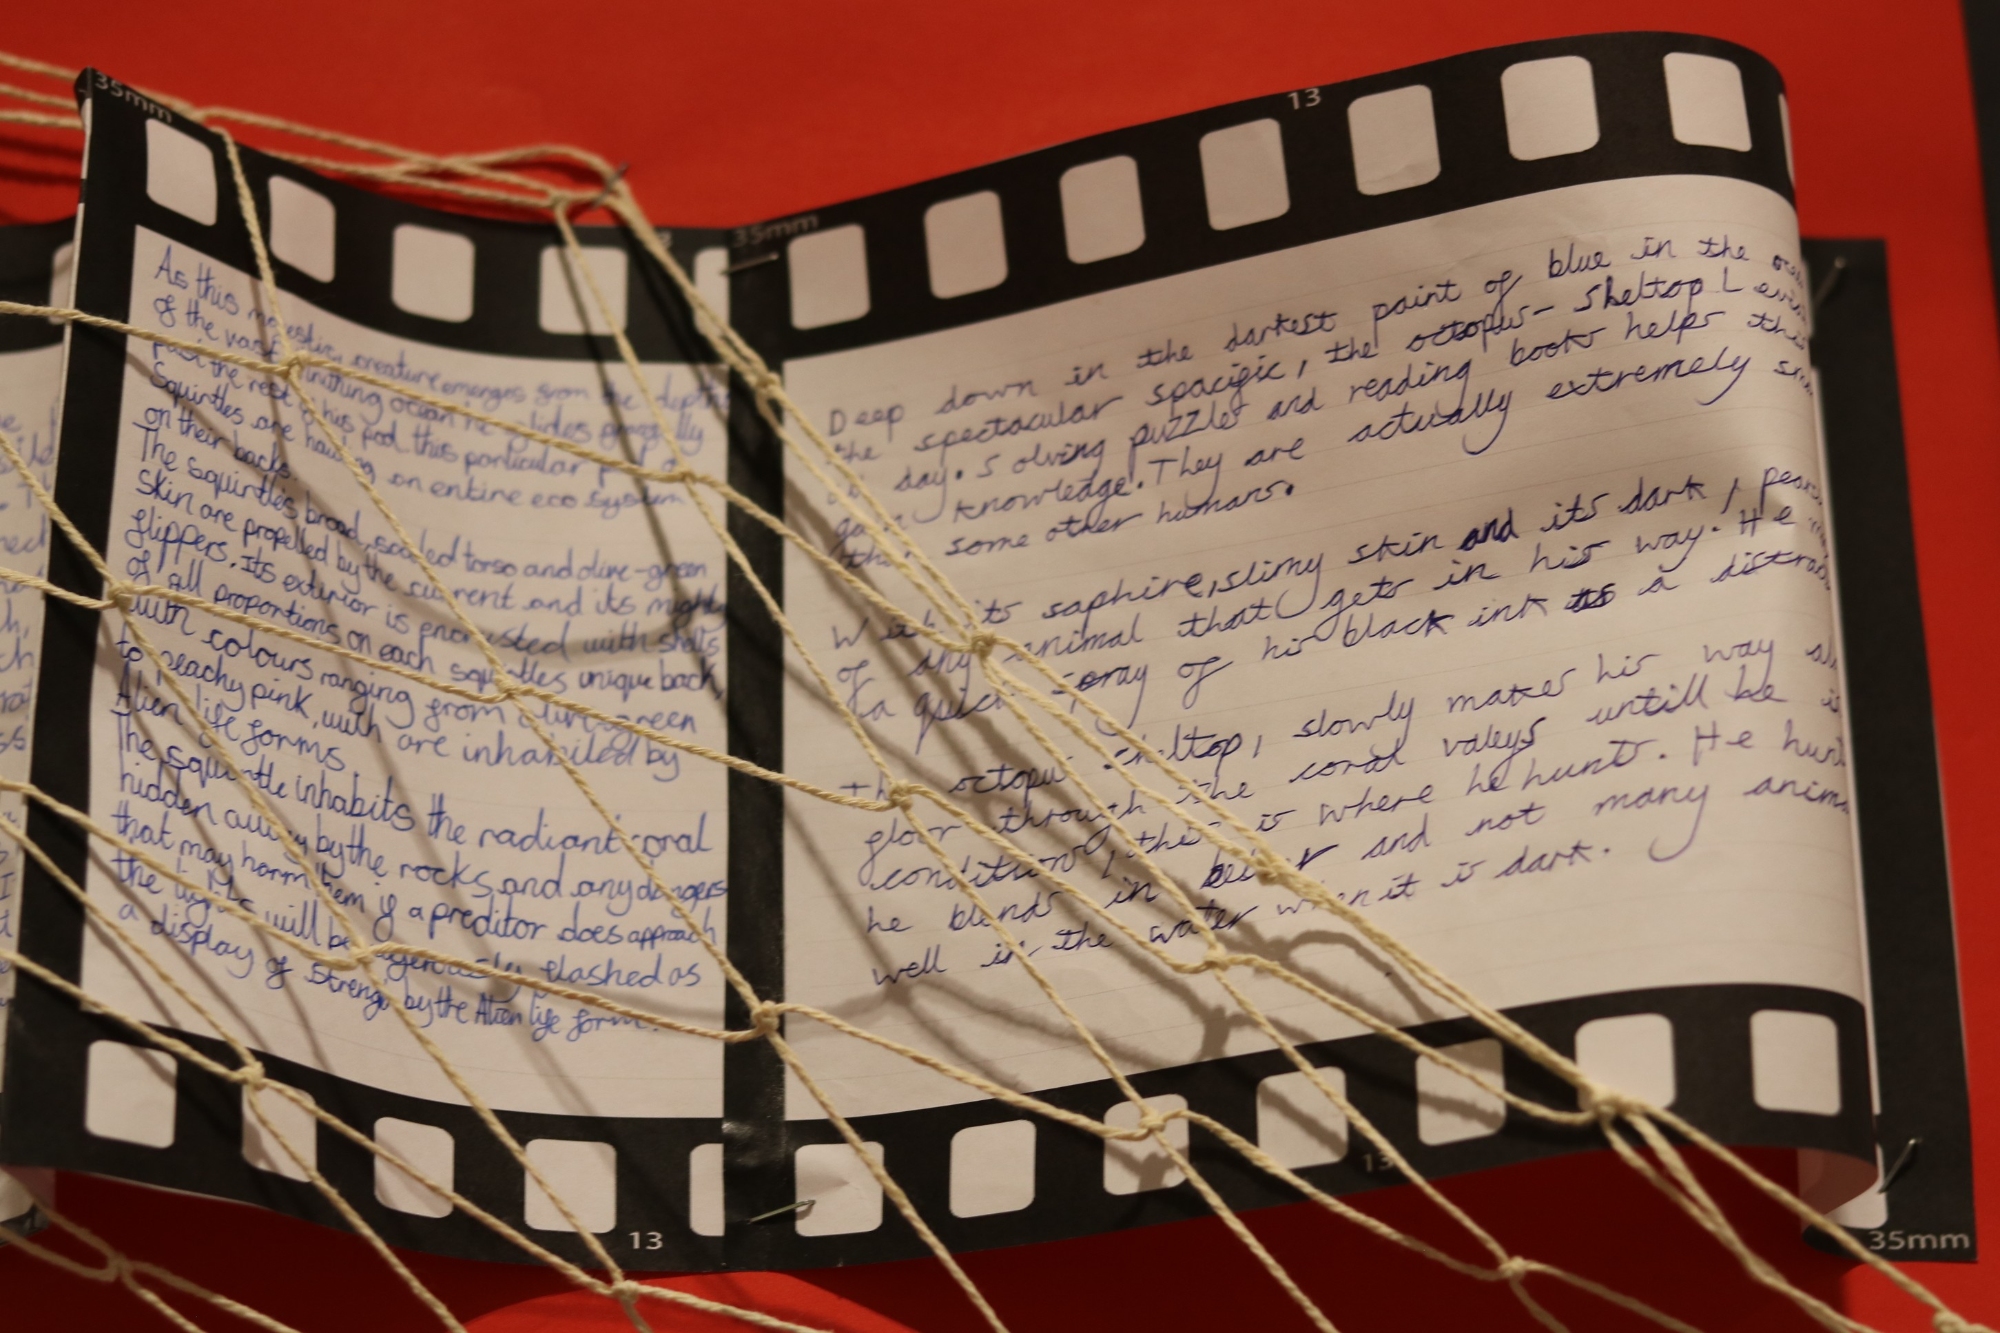 35mm
As this majestic creature emerges from the depths
of the vast nothing ocean he glides gracefully
past the rest of his pod this particular pod of
Squirtles are hauling an entire eco system
on their backs.
The squirtles broad, scaled torso and olive-green
skin are propelled by the current and its mighty
flippers. Its exterior is encrusted with shells
of all proportions on each squirtles unique back,
with colours ranging from olive green
to peachy pink, with are inhabited by
Alien life forms.
The squirtle inhabits the radiant coral
hidden away by the rocks and any dangers
that may harm them if a preditor does approach
the lights will be dangerously flashed as
a display of strength by the Alien life form.
13
35mm
13
Deep down in the darkest paint of blue in the
the spectacular spacific, the octopus - Sheltop L
day. Solving puzzles and reading books helps
gain knowledge. They are actually extremely
than some other humans.
With its saphire, slimy skin and its dark,
of any animal that gets in his way. He
a quick spray of his black ink as a
The octopus sheltop, slowly makes his way
floor through the coral valeys untill he is
condition, this is where he hunts. He
he blends in and not many
well in the water when it is dark.
13
35mm